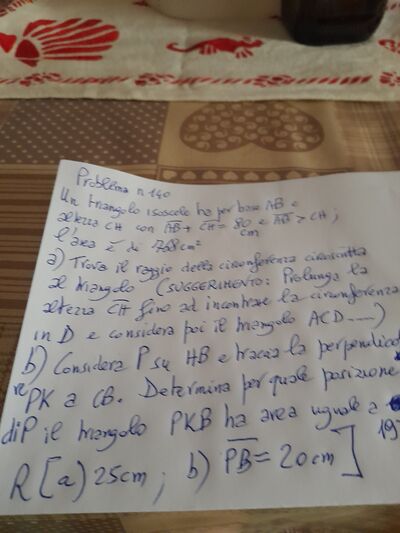 Problema n 140
Un triangolo isoscele ha per base AB e
altezza CH con AB + CH = 80 cm e AB > CH;
l'area è di 768 cm²
a) Trova il raggio della circonferenza circoscritta
al triangolo (SUGGERIMENTO: Prolunga la
altezza CH fino ad incontrare la circonferenza
in D e considera poi il triangolo ACD....)
b) Considera P su HB e traccia la perpendicola
re PK a CB. Determina per quale posizione
di P il triangolo PKB ha area uguale a
R [a) 25cm; b) PB = 20cm]